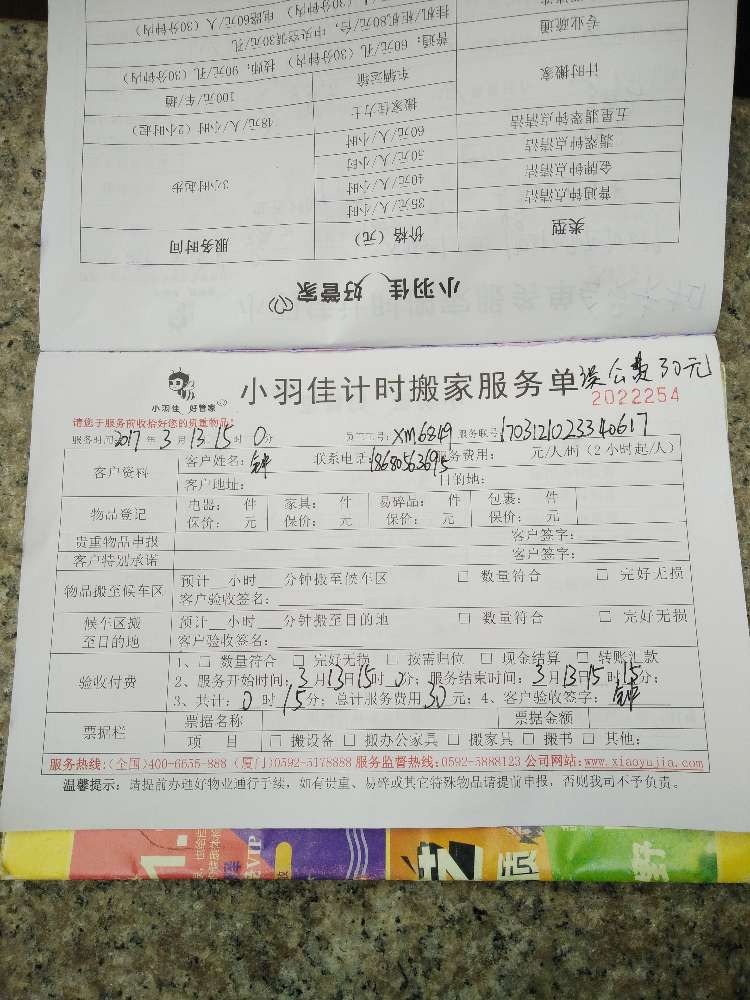 挂机/柜机80元/台，中央空调30元/孔
电器60元/人（30分钟内）
专业疏通
普通：60元/孔（30分钟内） 技师：90元/孔（30分钟内）
计时搬家
车辆运输
100元/车/趟
搬家佳力士
48元/人/小时（2小时起）
五星翡翠钟点清洁
60元/人/小时
翡翠钟点清洁
50元/人/小时
金牌钟点清洁
40元/人/小时
3小时起步
普通钟点清洁
35元/人/小时
类型
价格（元）
服务时间
小羽佳 好管家
小羽佳 好管家
小羽佳计时搬家服务单 误公费30元
2022254
请您于服务前收拾好您的贵重物品！
服务时间：2017年3月13 15时0分 员工工号：XM6849 服务联号：1703121023340617
客户资料
客户姓名： 联系电话：18680563695 服务费用： 元/人/时（2小时起/人）
客户地址： 目的地：
物品登记
电器： 件 家具： 件 易碎品： 件 包裹： 件
保价： 元 保价： 元 保价： 元 保价： 元
贵重物品申报 客户签字：
客户特别承诺 客户签字：
物品搬至候车区
预计 小时 分钟搬至候车区 □ 数量符合 □ 完好无损
客户验收签名：
候车区搬至目的地
预计 小时 分钟搬至目的地 □ 数量符合 □ 完好无损
客户验收签名：
验收付费
1、□ 数量符合 □ 完好无损 □ 按需归位 □ 现金结算 □ 转账汇款
2、服务开始时间：3月13日15时0分；服务结束时间：3月13日15时15分；
3、共计：0时15分；总计服务费用30元；4、客户验收签字：
票据栏
票据名称 票据金额
项 目 □ 搬设备 □ 搬办公家具 □ 搬家具 □ 搬书 □ 其他：
服务热线：(全国)400-6655-888 (厦门)0592-5178888 服务监督热线：0592-5888123 公司网站：www.xiaoyujia.com
温馨提示：请提前办理好物业通行手续，如有贵重、易碎或其它特殊物品请提前申报，否则我司不予负责。
1.
VIP